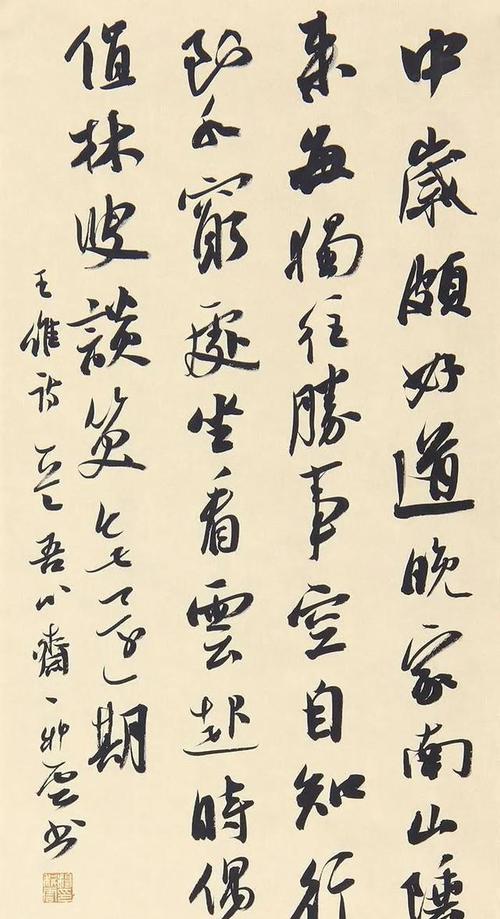 中歲頗好道晚家南山陲
来每獨往勝事空自知行
到水窮處坐看雲起時偶
值林叟談笑無還期
王維詩 吾 齋 雲书